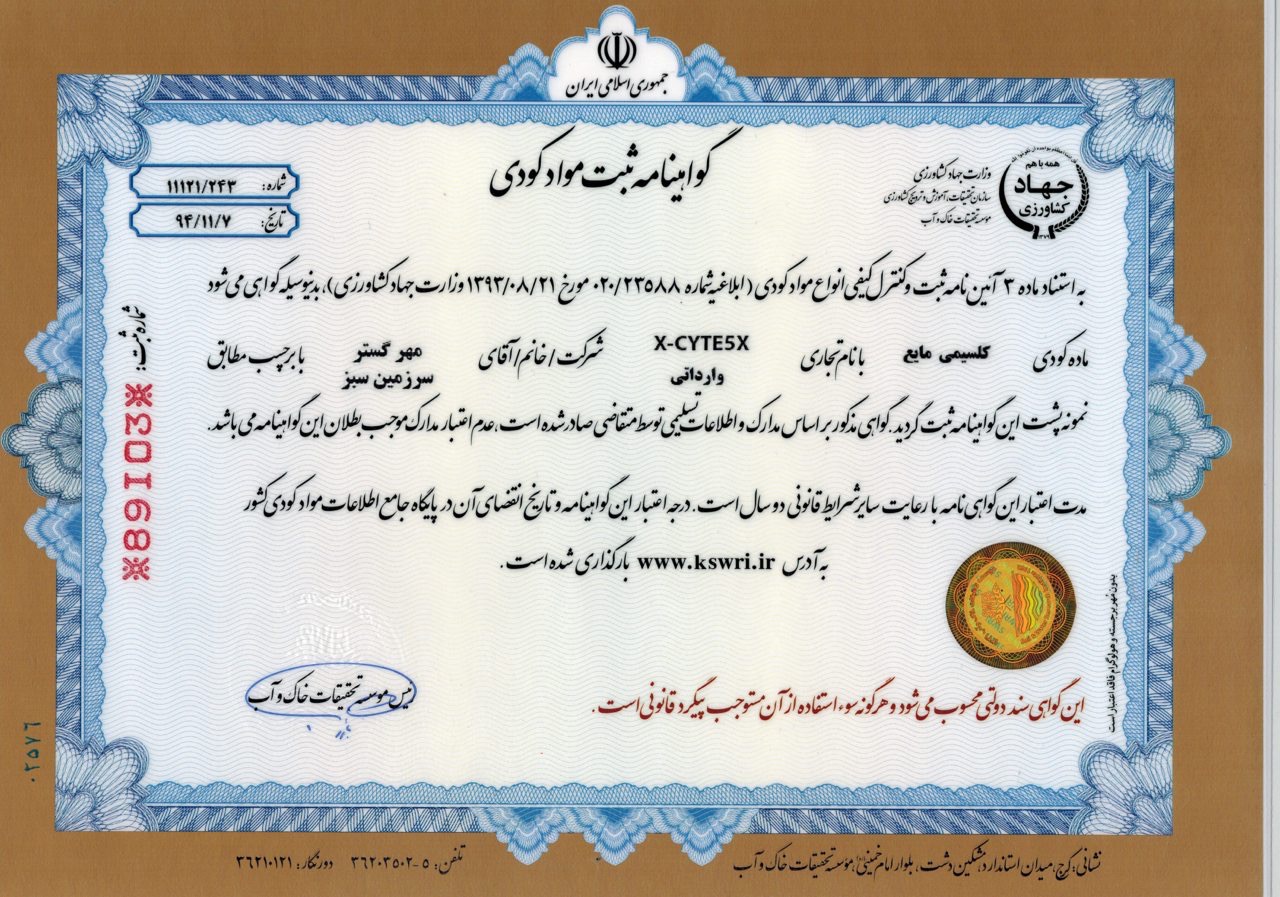 جمهوری اسلامی ایران
گواهینامه ثبت مواد کودی
همه با هم
جهاد
کشاورزی
۱۳۷۹
وزارت جهاد کشاورزی
سازمان تحقیقات، آموزش و ترویج کشاورزی
موسسه تحقیقات خاک و آب
شماره: ۱۱۱۲۱/۲۴۳
تاریخ: ۹۴/۱۱/۷
به استناد ماده ۳ آئین نامه ثبت و کنترل کیفی انواع مواد کودی (ابلاغیه شماره ۰۲۰/۲۳۵۸۸ مورخ ۱۳۹۳/۰۸/۲۱ وزارت جهاد کشاورزی)، بدینوسیله گواهی می شود
ماده کودی کلسیمی مایع با نام تجاری X-CYTE5X وارداتی شرکت/خانم/آقای مهر گستر سرزمین سبز با برچسب مطابق
نمونه پشت این گواهینامه ثبت گردید. گواهی مذکور بر اساس مدارک و اطلاعات تسلیمی توسط متقاضی صادر شده است، عدم اعتبار مدارک موجب بطلان این گواهینامه می باشد.
مدت اعتبار این گواهی نامه با رعایت سایر شرایط قانونی دو سال است. درجه اعتبار این گواهینامه و تاریخ انقضای آن در پایگاه جامع اطلاعات مواد کودی کشور
به آدرس www.kswri.ir بارگذاری شده است.
شماره ثبت:
※89103※
بدون مُهر برجسته و هولوگرام فاقد اعتبار است
SWRI
رئیس موسسه تحقیقات خاک و آب
این گواهی سند دولتی محسوب می شود و هرگونه سوء استفاده از آن مستوجب پیگرد قانونی است.
۰۲۵۷۶
نشانی: کرج، میدان استاندارد، مشکین دشت، بلوار امام خمینی، موسسه تحقیقات خاک و آب
تلفن: ۵-۳۶۲۰۳۵۰۲ دورنگار: ۳۶۲۱۰۱۲۱